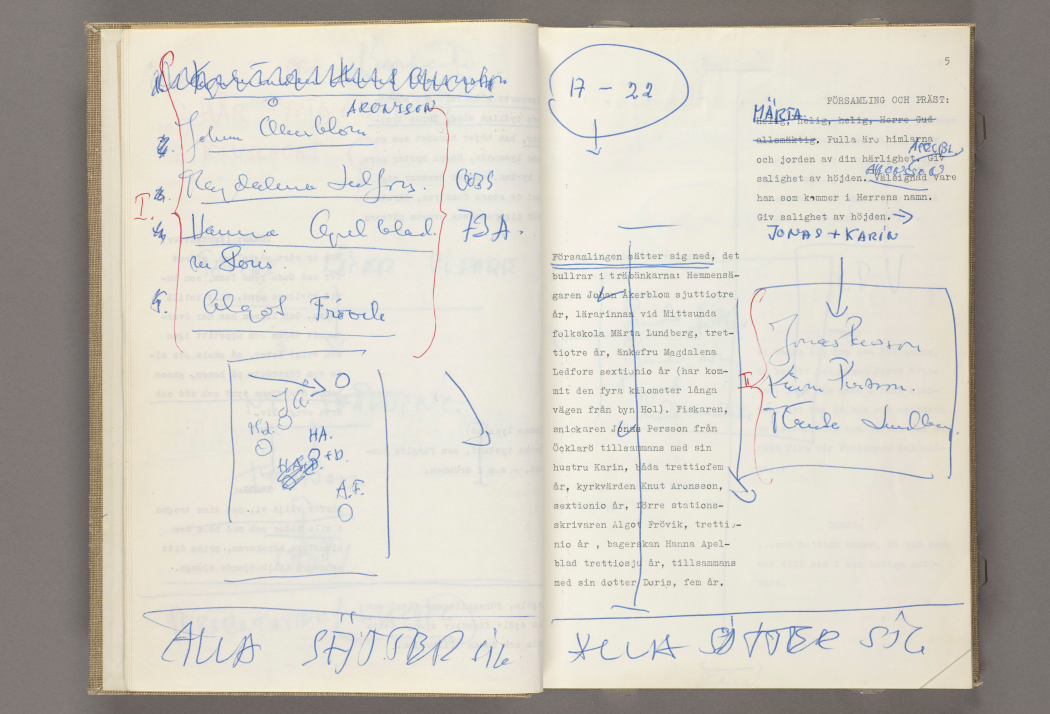 ARONSSON
Johan Åkerblom
Magdalena Ledfors. OBS
I. Hanna Apelblad. 73A.
m Doris.
Algot Frövik
J.Å
M.L.
HA.
+D.
A.F.
ALLA SÄTTER SIG
17 - 22
5
FÖRSAMLING OCH PRÄST:
MÄRTA
helig, helig, helig, Herre Gud
allsmäktig. Fulla äro himlarna
APELBL
och jorden av din härlighet. Giv
ARONSSON
salighet av höjden. Välsignad vare
han som kommer i Herrens namn.
Giv salighet av höjden.
JONAS + KARIN
Församlingen sätter sig ned, det
bullrar i träbänkarna: Hemmansä-
garen Johan Åkerblom sjuttiotre
år, lärarinnan vid Mittsunda
folkskola Märta Lundberg, tret-
tiotre år, änkefru Magdalena
Ledfors sextionio år (har kom-
mit den fyra kilometer långa
vägen från byn Hol). Fiskaren,
snickaren Jonas Persson från
Öcklarö tillsammans med sin
hustru Karin, båda trettiofem
år, kyrkvärden Knut Aronsson,
sextionio år, förre stations-
skrivaren Algot Frövik, trettio-
nio år , bagerskan Hanna Apel-
blad trettiosju år, tillsammans
med sin dotter Doris, fem år.
Jonas Persson
II Karin Persson.
Märta Lundberg.
ALLA SÄTTER SIG